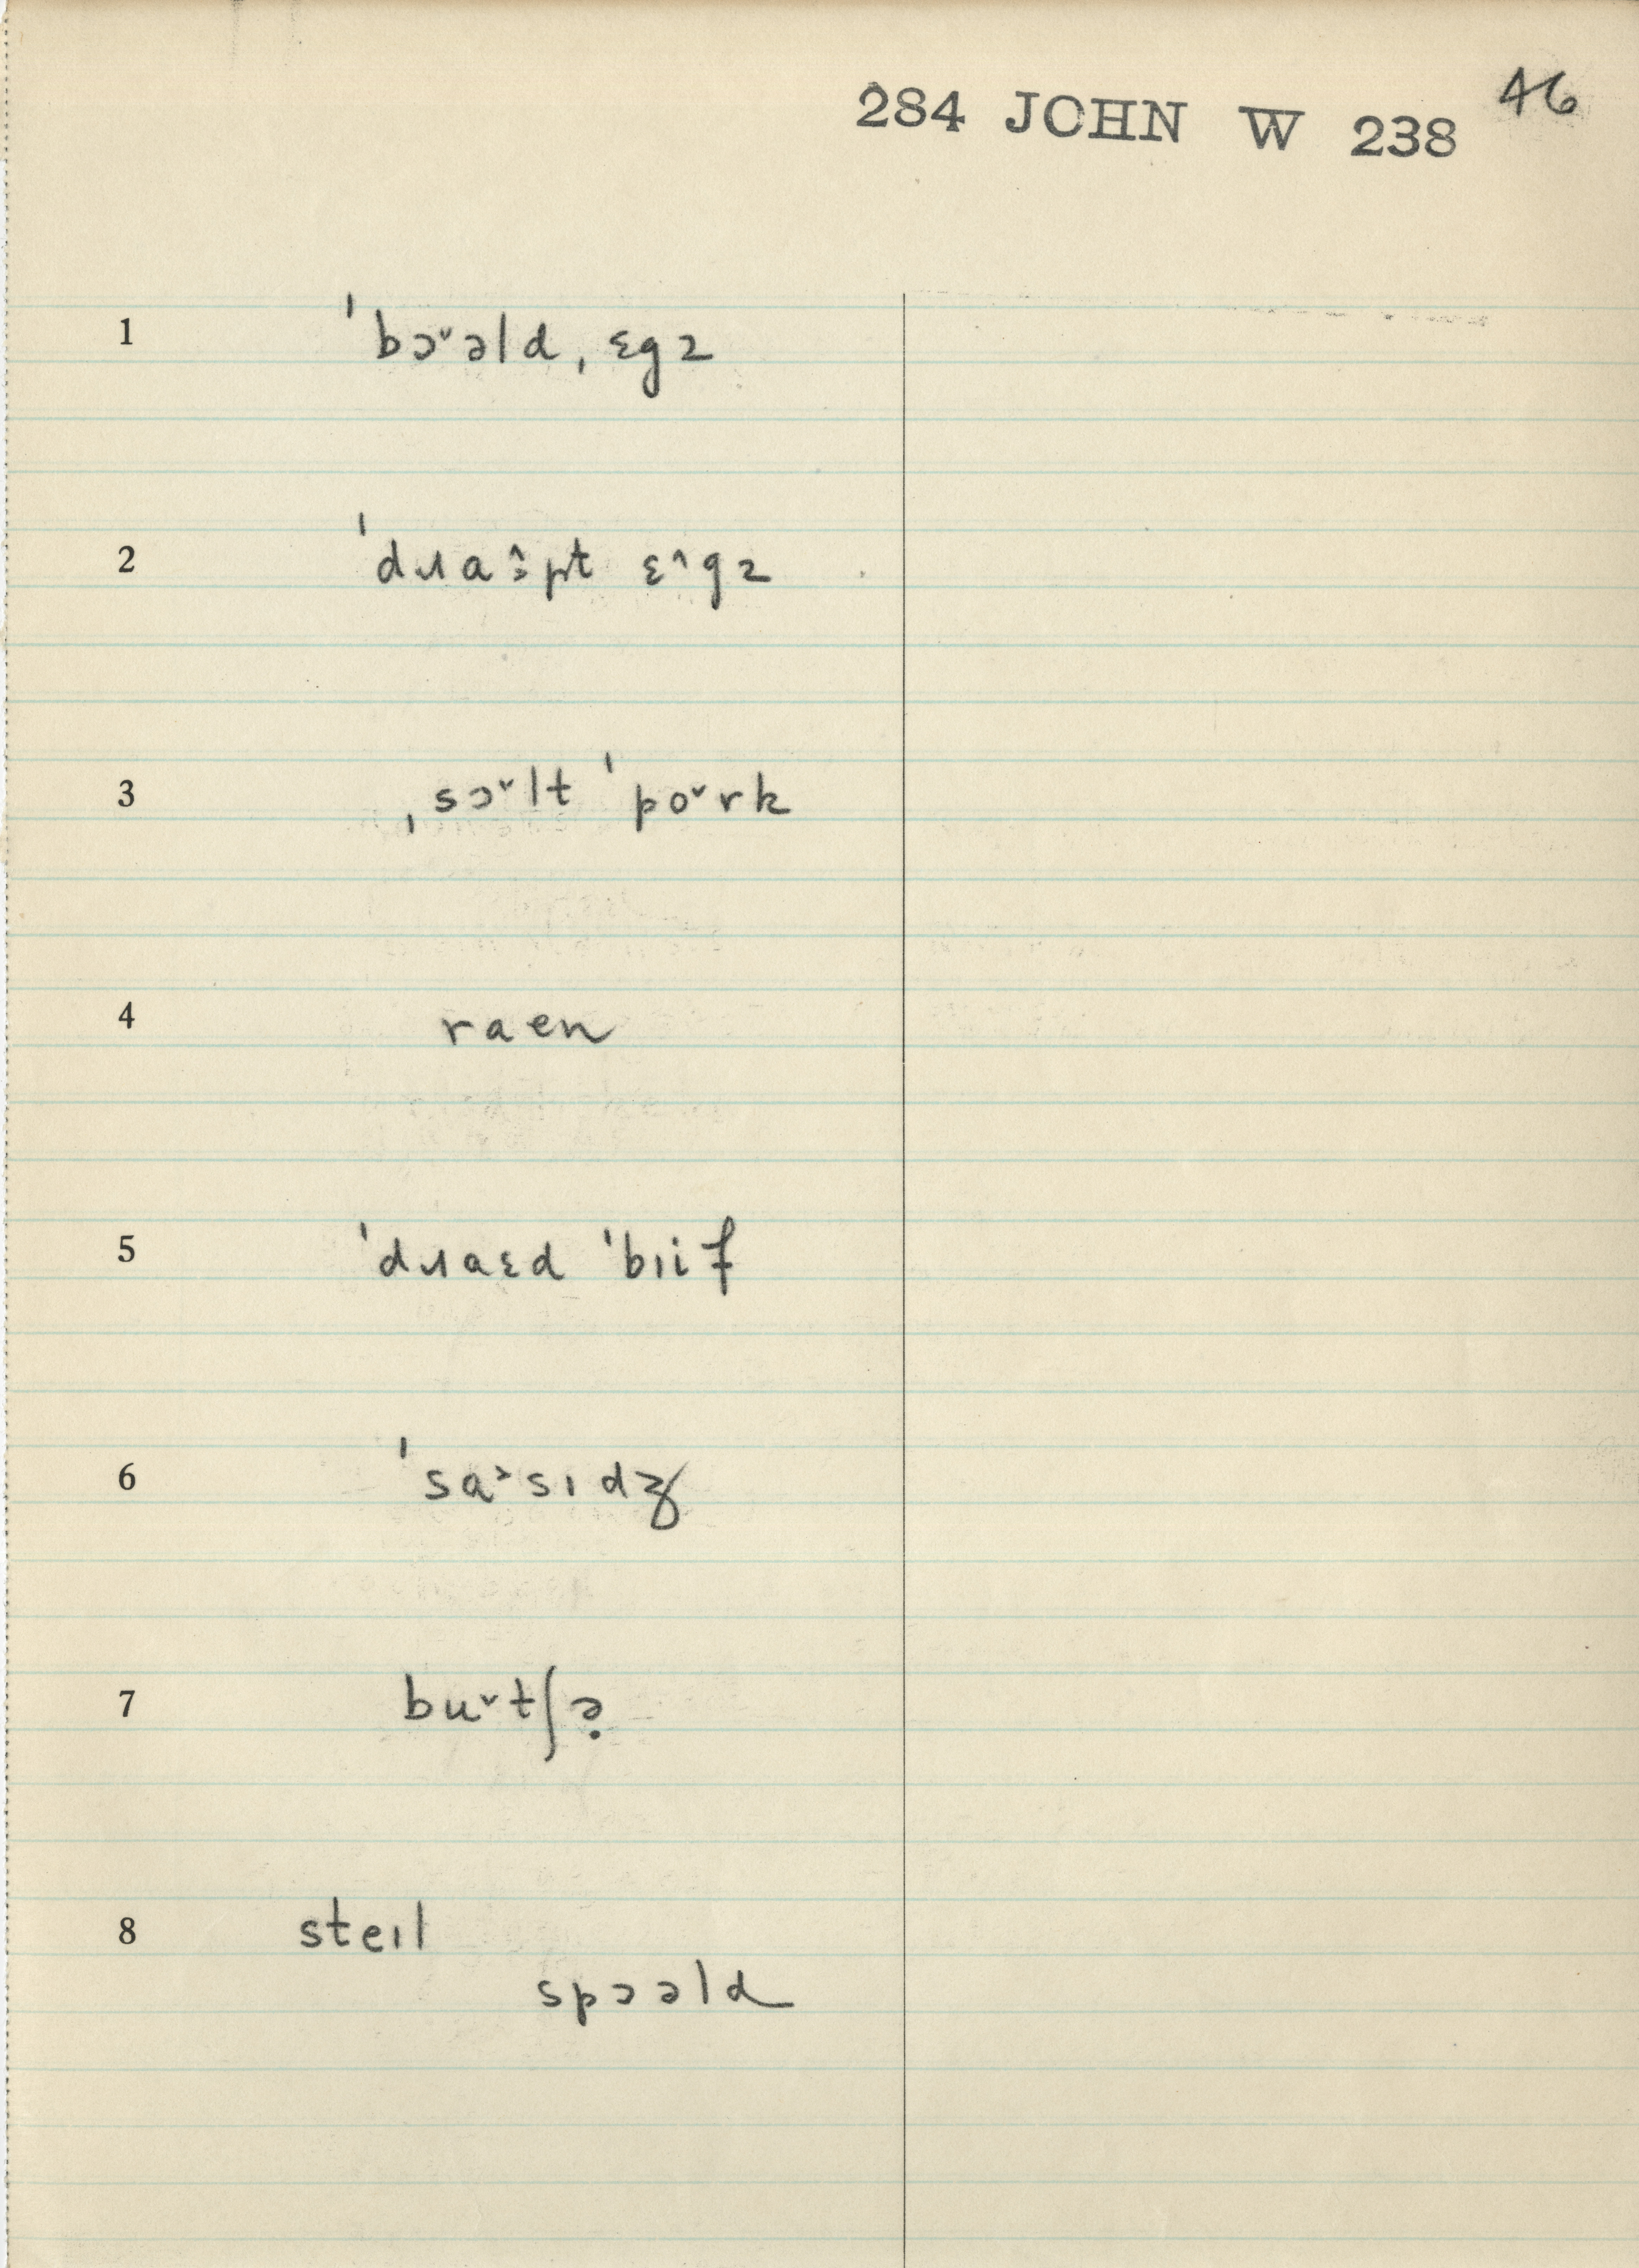 284 JOHN W 238 46
1 ˈbɔ˅əld ˌɛgz
2 ˈdɹɑɔ̯̂pt ɛ˄gz
3 ˌsɔ˅lt ˈpo˅rk
4 raen
5 ˈdɹaɛd ˈbɪif
6 ˈsɑ˃sɪdʒ
7 bu˅tʃə̣
8 steɪl
spɔəld